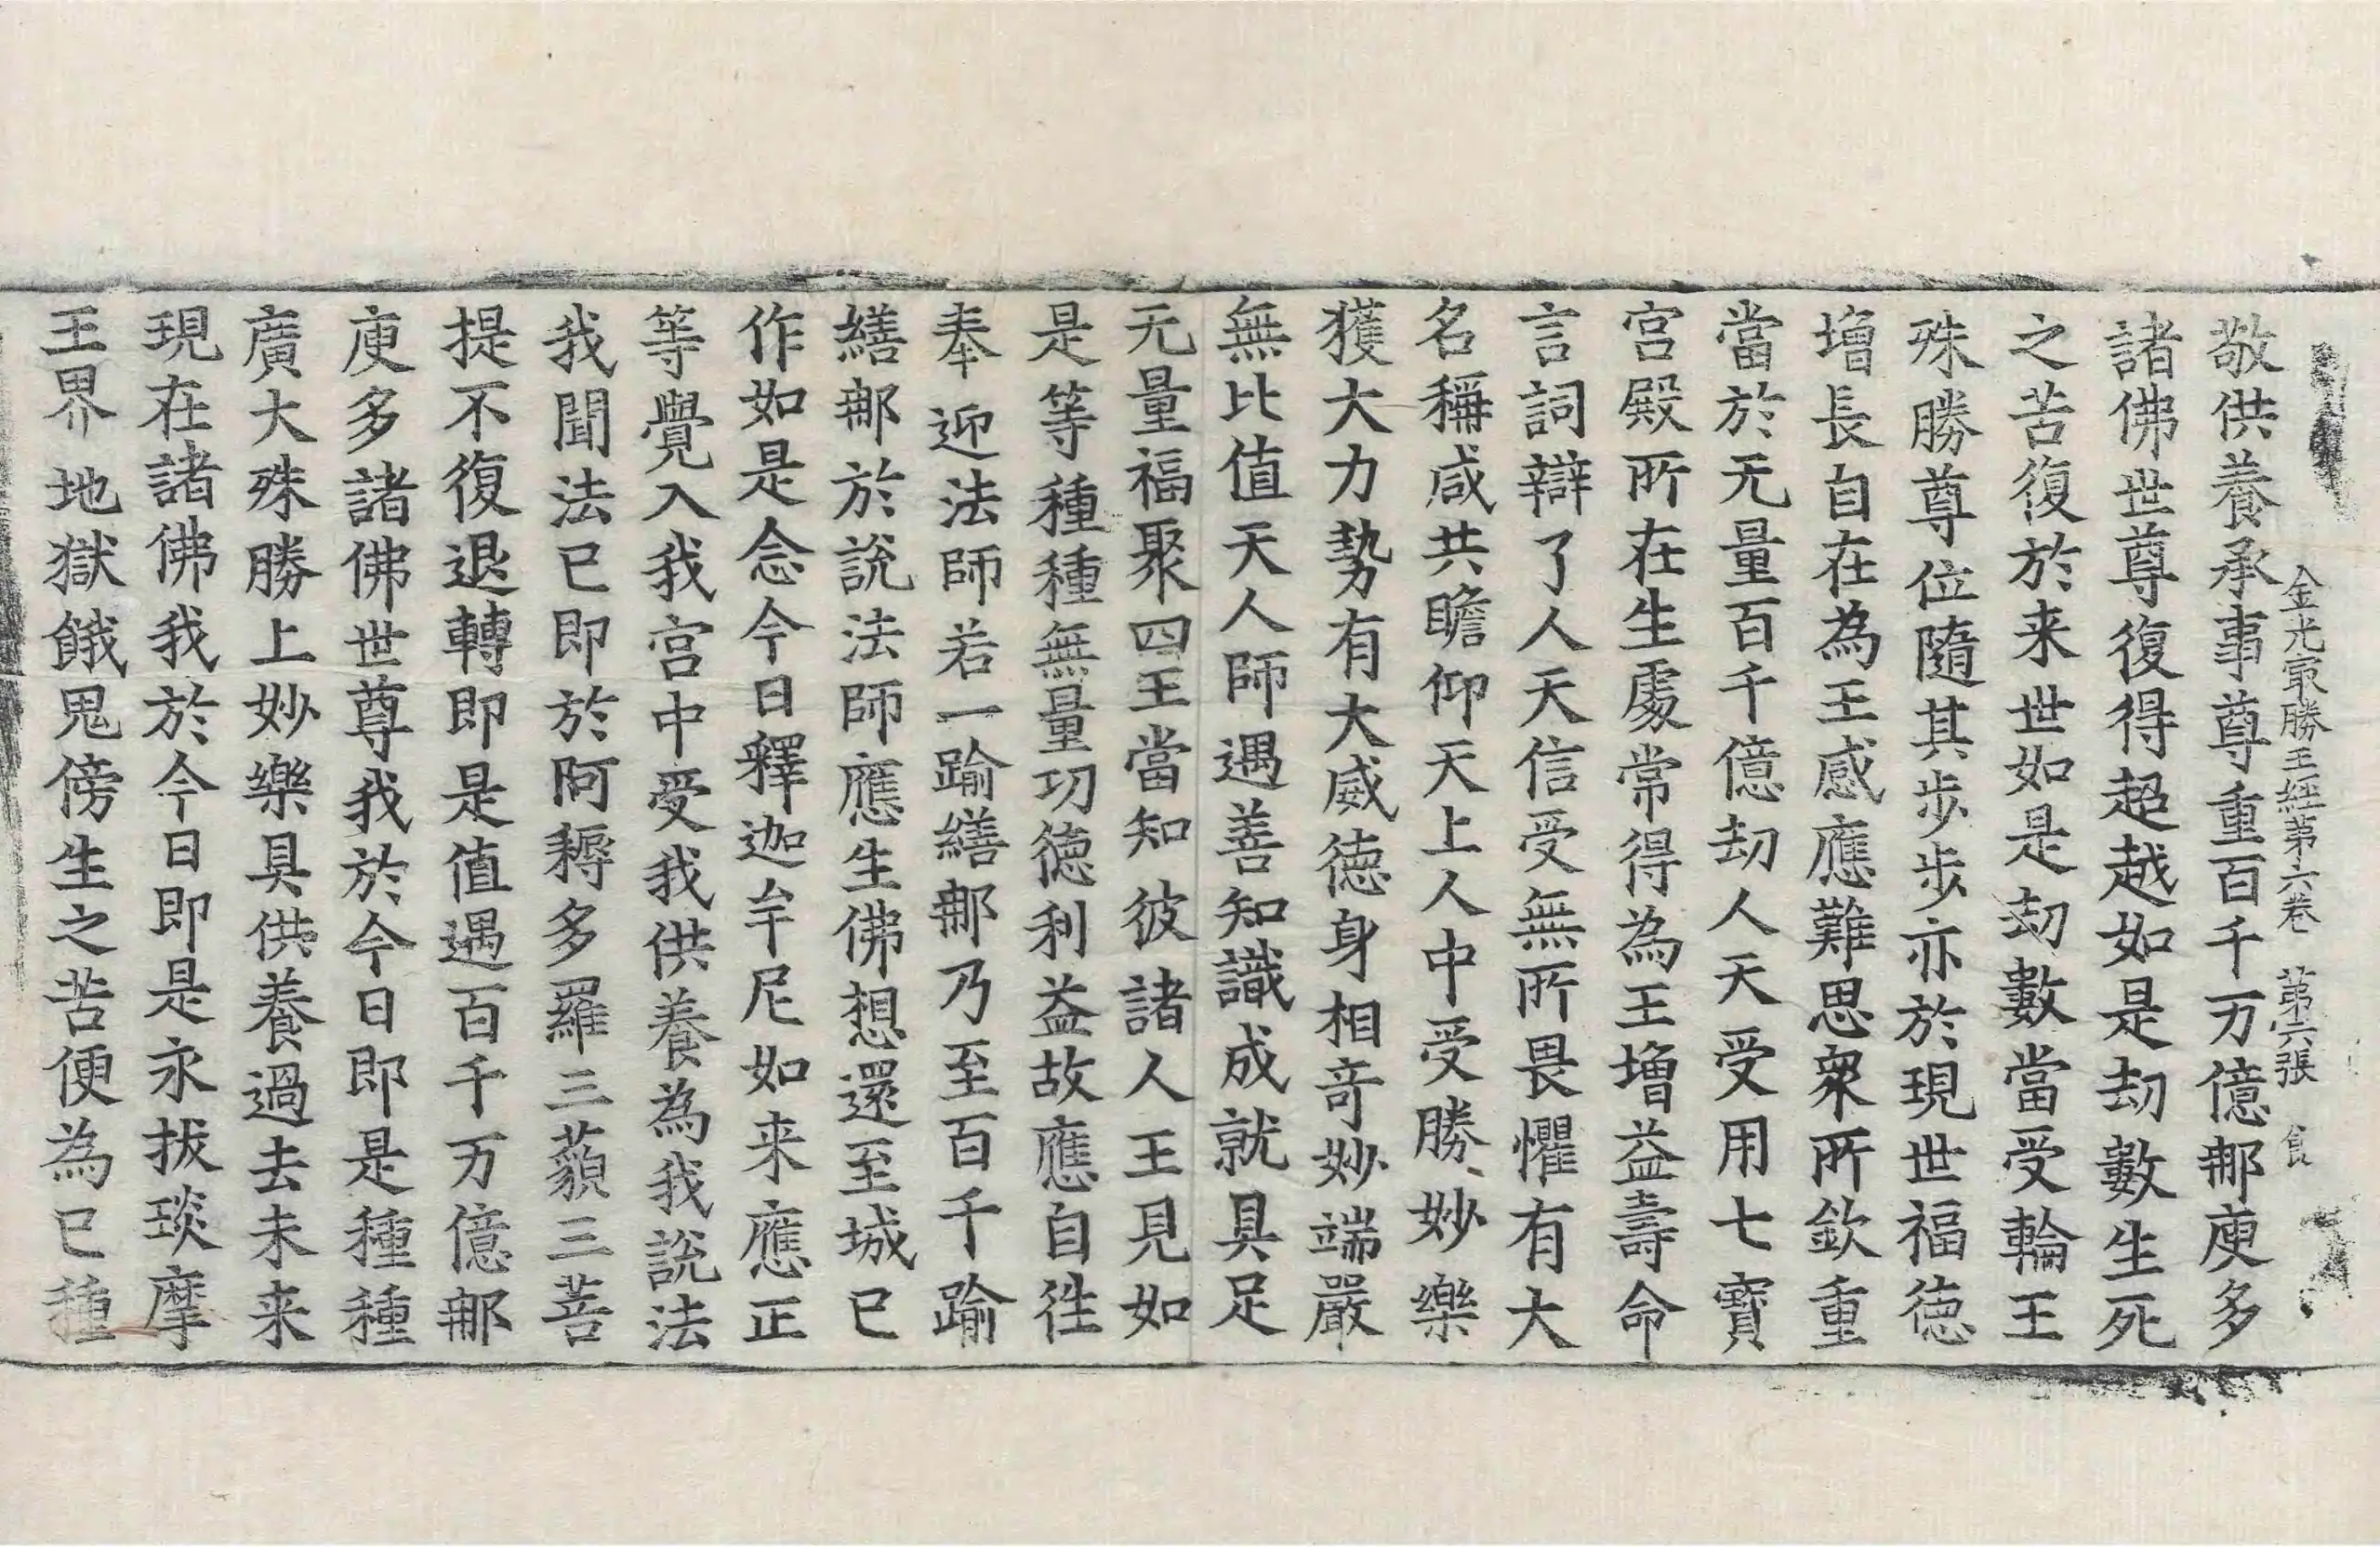 金光㝡勝王經第六卷　第六張　食
敬供養承事尊重百千万億𨙻庾多
諸佛世尊復得超越如是劫數生死
之苦復於来世如是劫數當受輪王
殊勝尊位隨其步步亦於現世福徳
增長自在為王感應難思衆所欽重
當於无量百千億劫人天受用七寶
宮殿所在生處常得為王增益壽命
言詞辯了人天信受無所畏懼有大
名稱咸共瞻仰天上人中受勝妙樂
獲大力勢有大威徳身相奇妙端嚴
無比值天人師遇善知識成就具足
无量福聚四王當知彼諸人王見如
是等種種無量功徳利益故應自往
奉迎法師若一踰繕𨙻乃至百千踰
繕𨙻於說法師應生佛想還至城已
作如是念今日釋迦牟尼如来應正
等覺入我宮中受我供養為我說法
我聞法已即於阿耨多羅三藐三菩
提不復退轉即是值遇百千万億𨙻
庾多諸佛世尊我於今日即是種種
廣大殊勝上妙樂具供養過去未来
現在諸佛我於今日即是永拔琰摩
王界地獄餓鬼傍生之苦便為已種